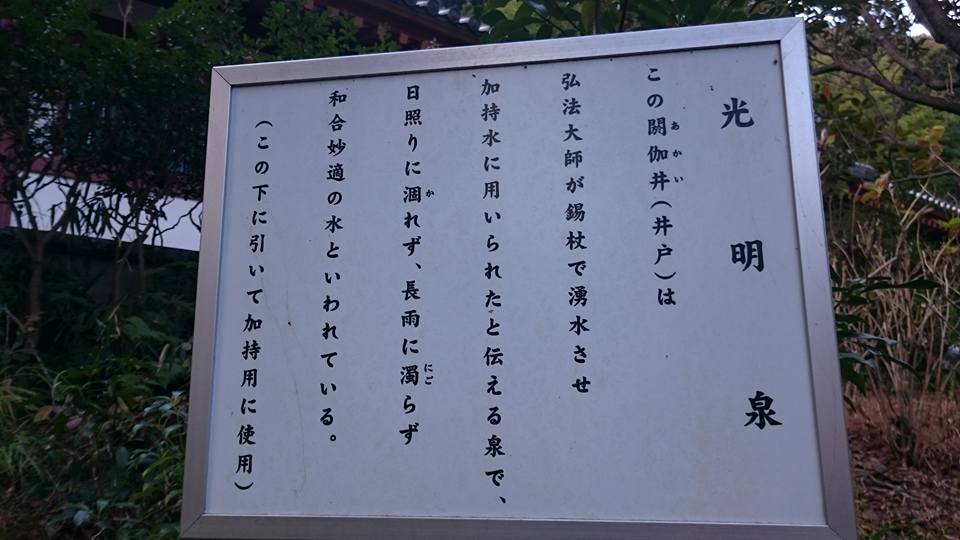 光明泉
この閼伽井(井戸)は
あかい
弘法大師が錫杖で湧水させ
加持水に用いられたと伝える泉で、
日照りに涸れず、長雨に濁らず
か
にご
和合妙適の水といわれている。
(この下に引いて加持用に使用)